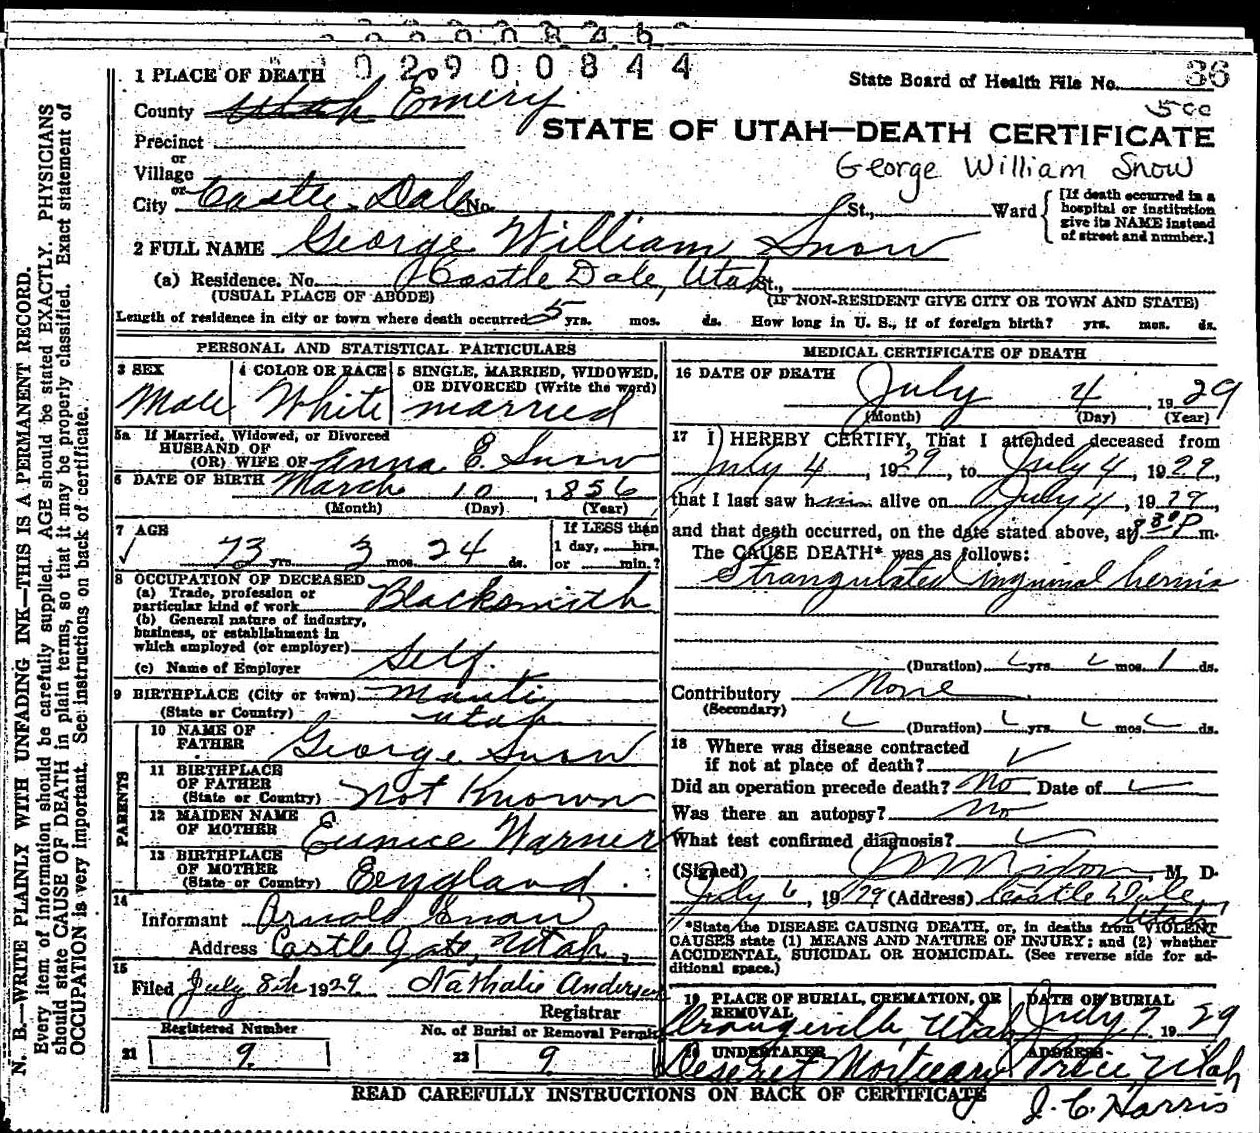 0 2 9 0 0 8 4 4
1 PLACE OF DEATH
State Board of Health File No. 36
County Utah Emery
STATE OF UTAH—DEATH CERTIFICATE
Precinct
or
George William Snow
Village
or
City Castle Dale No. St., Ward
[If death occurred in a
hospital or institution
give its NAME instead
of street and number.]
2 FULL NAME George William Snow
(a) Residence. No. Castle Dale, Utah St.,
(USUAL PLACE OF ABODE) (IF NON-RESIDENT GIVE CITY OR TOWN AND STATE)
Length of residence in city or town where death occurred 5 yrs. mos. ds. How long in U. S., if of foreign birth? yrs. mos. ds.
PERSONAL AND STATISTICAL PARTICULARS
3 SEX
Male
4 COLOR OR RACE
White
5 SINGLE, MARRIED, WIDOWED,
OR DIVORCED (Write the word)
married
5a If Married, Widowed, or Divorced
HUSBAND OF
(OR) WIFE OF Anna E. Snow
6 DATE OF BIRTH March 10, 1856
(Month) (Day) (Year)
7 AGE
73 yrs. 3 mos. 24 ds.
If LESS than
1 day, hrs.
or min.?
8 OCCUPATION OF DECEASED
(a) Trade, profession or
particular kind of work Blacksmith
(b) General nature of industry,
business, or establishment in
which employed (or employer)
(c) Name of Employer Self.
9 BIRTHPLACE (City or town) Manti
(State or Country) Utah
PARENTS
10 NAME OF
FATHER George Snow
11 BIRTHPLACE
OF FATHER
(State or Country) Not Known
12 MAIDEN NAME
OF MOTHER Eunice Warner
13 BIRTHPLACE
OF MOTHER
(State or Country) England.
14
Informant Arnold Snow
Address Castle Gate, Utah,
15
Filed July 8th 1929 Nathalie Andersen
Registrar
Registered Number
21 9.
No. of Burial or Removal Permit
22 9.
MEDICAL CERTIFICATE OF DEATH
16 DATE OF DEATH
July 4, 1929
(Month) (Day) (Year)
17 I HEREBY CERTIFY, That I attended deceased from
July 4, 1929, to July 4, 1929,
that I last saw him alive on July 4, 1929,
and that death occurred, on the date stated above, at 8 30 P m.
The CAUSE DEATH* was as follows:
Strangulated inguinal hernia
(Duration) yrs. mos. 1 ds.
Contributory None
(Secondary)
(Duration) yrs. mos. ds.
18 Where was disease contracted
if not at place of death?
Did an operation precede death? No Date of
Was there an autopsy? No
What test confirmed diagnosis?
(Signed) M. D.
July 6, 1929 (Address) Castle Dale,
Utah
*State the DISEASE CAUSING DEATH, or, in deaths from VIOLENT
CAUSES state (1) MEANS AND NATURE OF INJURY; and (2) whether
ACCIDENTAL, SUICIDAL OR HOMICIDAL. (See reverse side for ad-
ditional space.)
19 PLACE OF BURIAL, CREMATION, OR
REMOVAL
Orangeville, Utah
DATE OF BURIAL
July 7 1929
20 UNDERTAKER
Deseret Mortuary
ADDRESS
Price, Utah
READ CAREFULLY INSTRUCTIONS ON BACK OF CERTIFICATE
J. C. Harris
N. B.—WRITE PLAINLY WITH UNFADING INK—THIS IS A PERMANENT RECORD.
Every item of information should be carefully supplied. AGE should be stated EXACTLY. PHYSICIANS
should state CAUSE OF DEATH in plain terms, so that it may be properly classified. Exact statement of
OCCUPATION is very important. See instructions on back of certificate.